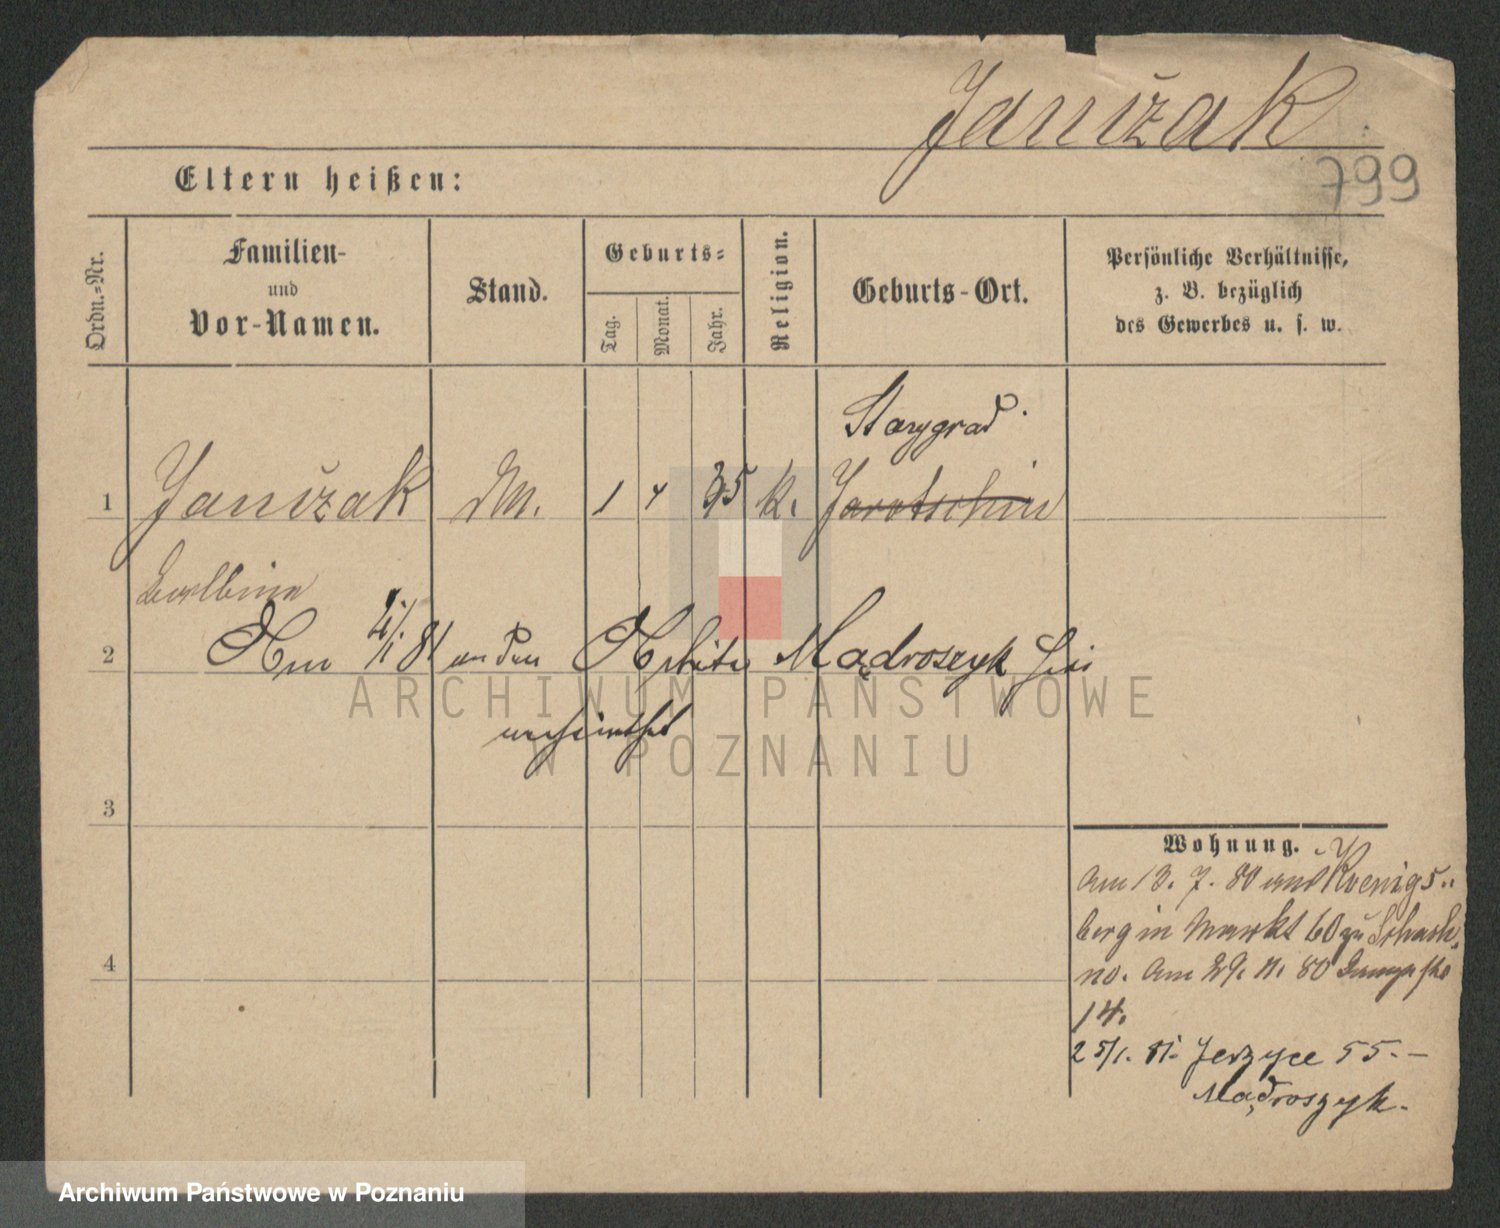 Janižak
799
Eltern heißen:
Ordn.-Nr.
Familien-
und
Vor-Namen.
Stand.
Geburts-
Tag.
Monat.
Jahr.
Religion.
Geburts-Ort.
Persönliche Verhältnisse,
z. B. bezüglich
des Gewerbes u. s. w.
Starygrad
1 Janižak DM. 1 4 35 k. Jarotschin
Balbina
2 4/1 81 an den Mądroszyk hier
verheirathet
3
4
Wohnung.
Am 13. 7. 80 aus Koenigs-
berg in Markt 60 zu
no. Am 29. 11. 80
14.
25/1. 81. Jerzyce 55. –
Mądroszyk.
ARCHIWUM PAŃSTWOWE
W POZNANIU
Archiwum Państwowe w Poznaniu